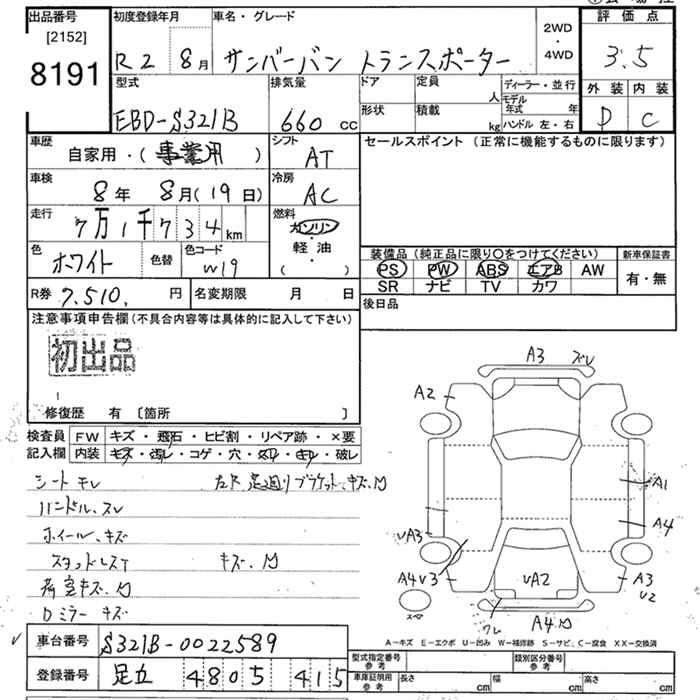 出品番号
[2152]
8191
初度登録年月
R2 8月
車名・グレード
サンバーバン トランスポーター
2WD
・
4WD
評価点
3.5
外装 内装
D C
型式
EBD-S321B
排気量
660 cc
ドア
定員
人
形状
積載
kg
ディーラー・並行
モデル年式 年
ハンドル 左・右
車歴
自家用・(事業用)
シフト
AT
セールスポイント (正常に機能するものに限ります)
車検
8年 8月(19日)
冷房
AC
走行
7万1千734km
燃料
ガソリン
軽・油
( )
色
ホワイト
色替
色コード
W19
装備品 (純正品に限り○をつけてください)
PS PW ABS エアB AW
SR ナビ TV カワ
新車保証書
有・無
R券 7,510. 円
名変期限 月 日
後日品
注意事項申告欄(不具合内容等は具体的に記入して下さい)
初出品
修復歴 有 [箇所 ]
検査員
記入欄
FW キズ・飛石・ヒビ割・リペア跡・×要
内装 キズ・汚レ・コゲ・穴・スリ・キレ・破レ
シート キレ
左右 足廻りブラケット、キズ、凹
ハンドル、スレ
ホイール、キズ
スタッドレス下
キズ、凹
荷室キズ、凹
Dミラー キズ
A3 ズレ
A2
A1
UA3
A4
A4U3
UA2
A3
U2
スペア
クレ
A4凹
A−キズ E−エクボ U−凹み W−補修跡 S−サビ、C−腐食 XX−交換済
車台番号
S321B-0022589
登録番号
足立 4805 415
型式指定番号
参考
類別区分番号
参考
車庫証明用
参考
長さ cm
幅 cm
高さ cm